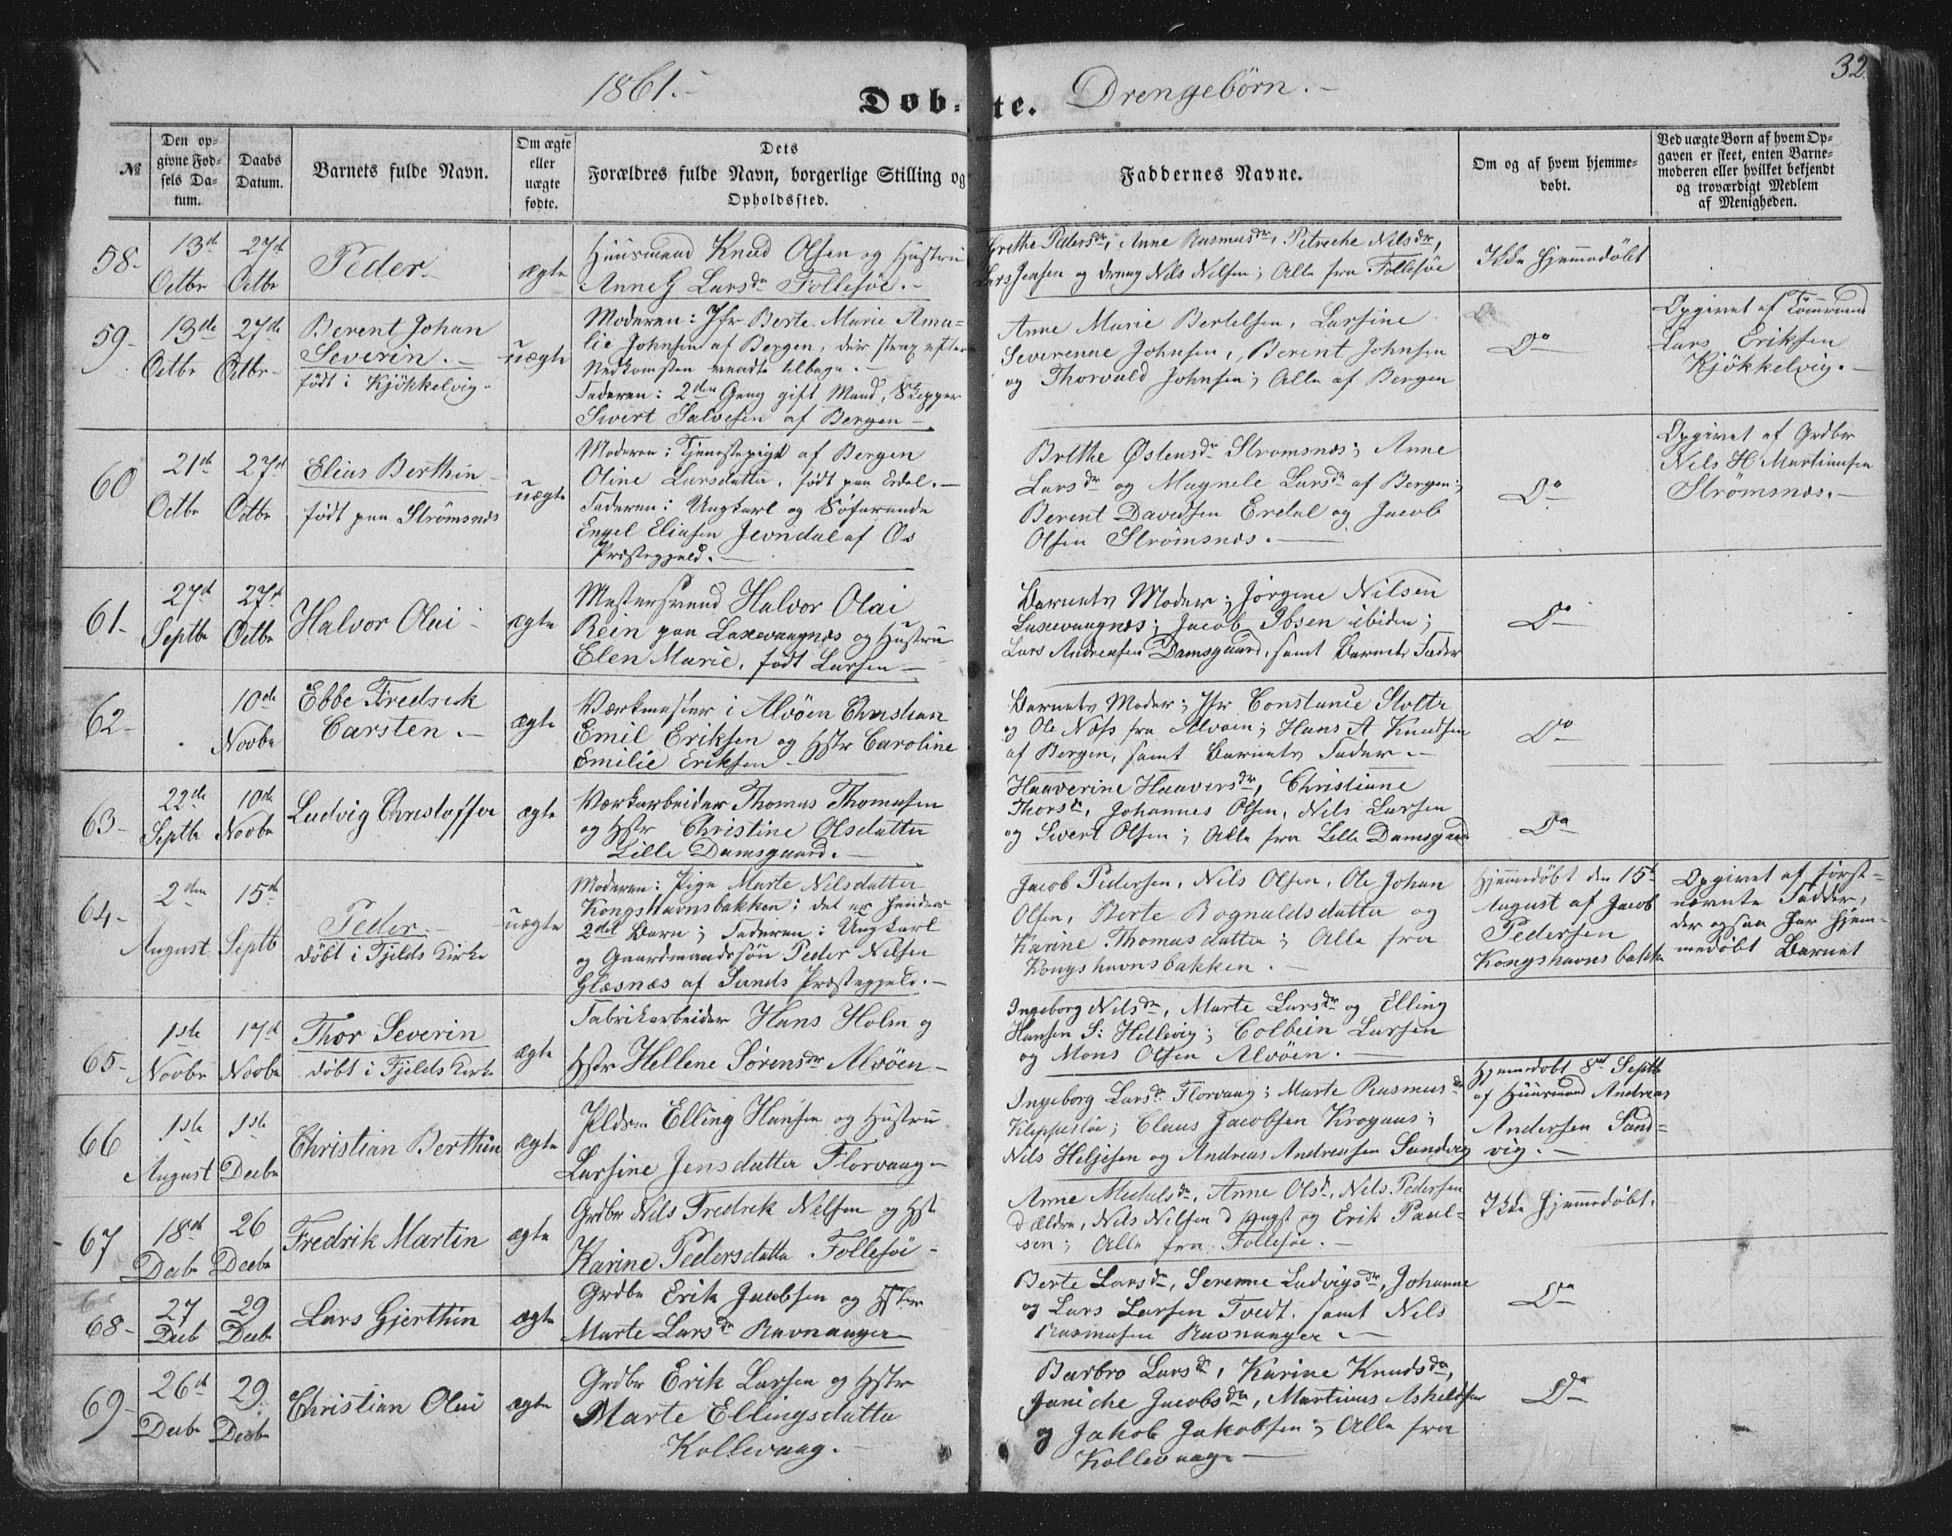 1861.-
Døb-te. Drengebørn.-
32
№
Den op-
givne Fød-
sels Da-
tum.
Daabs
Datum.
Barnets fulde Navn.
Om ægte
eller
uægte
fødte.
Dets
Forældres fulde Navn, borgerlige Stilling og
Opholdssted.
Faddernes Navne.
Om og af hvem hjemme-
døbt.
Ved uægte Børn af hvem Op-
gaven er skeet, enten Barne-
moderen eller hvilket bekjendt
og troværdigt Medlem
af Menigheden.
58-
13de
Octbr
27de
Octbr
Peder-
ægte
Huusmand Knud Olsen og Hustru
Anne G Larsdr Follesøe.-
Grethe Pedersdr, Anne Rasmusdr, Petriche Nilsdr,
Lars Jensen og dreng Nils Nilsen; Alle fra Follesøe
Ikke hjemmedøbt
59-
13de
Octbr
27de
Octbr
Berent Johan
Severin.-
født i Kjøkkelvig-
uægte
Moderen: Jfr Berte Marie Ama-
lie Johnsen af Bergen, der strax efter
Nedkomsten vendte tilbage.-
Faderen: 2den Gang gift Mand, Skipper
Sivert Salvesen af Bergen-
Anne Marie Bertelsen, Larsine
Severenne Johnsen, Berint Johnsen
og Thorvald Johnsen; Alle af Bergen
Do
Opgivet af Tømmermd
Lars Eriksen
Kjøkkelvig.-
60
21de
Octbr
27de
Octbr
Elias Berthin-
født paa Strømsnæs
uægte
Moderen: Tjenestepige af Bergen
Oline Larsdatter, født paa Erdal.-
Faderen: Ungkarl og Søfarende
Engel Eliasen Jevndal af Os
Præstegjeld.-
Brethe Østensdr Strømsnæs; Anne
Larsdr og Magnele Larsdr af Bergen;
Berent Davidsen Erdal og Jacob
Olsen Strømsnæs.-
Do
Opgivet af Grdbr
Nils H Martinusen
Strømsnæs.-
61-
27de
Septbr
27de
Octbr
Halvor Olai-
ægte
Mestersvend Halvor Olai
Rein paa Laxevaagnæs og Hustru
Elen Marie, født Larsen-
Barnets Moder; Jørgine Nilsen
Laxevaagnæs; Jacob Ibsen ibiden;
Lars Andreasen Damsgaard, samt Barnets Fader
Do
62-
10de
Novbr
Ebbe Fredrik
Carsten.-
ægte
Værkmester i Alvøen Christian
Emil Eriksen og Hstr Caroline
Emilie Eriksen-
Barnets Moder; Jfr Constance Stoltz
og Ole Næss fra Alvøen; Hans A Knudsen
af Bergen, samt Barnets Fader.-
Do
63-
22de
Septbr
10de
Novbr
Ludvig Christoffer
ægte
Værkarbeider Thomas Thomasen
og Hstr Christine Olsdatter
Lille Damsgaard.-
Haaverine Haaversdr, Christiane
Thorsdr, Johannes Olsen, Nils Larsen
og Sivert Olsen; Alle fra Lille Damsgaard
Do
64-
2den
August
15de
Septb
Peder-
døbt i Fjelds Kirke
uægte
Moderen: Pige Marte Nilsdatter
Kongshavnsbakken: det er hendes
2det Barn; Faderen: Ungkarl
og Gaardmandssøn Peder Nilsen
Glæsnæs af Sunds Præstegjeld.-
Jacob Pedersen, Nils Olsen, Ole Johan
Olsen, Berte Rognaldsdatter og
Karine Thomasdatter; Alle fra
Kongshavnsbakken.-
Hjemmedøbt den 15de
August af Jacob
Pedersen
Kongshavnsbakke
Opgivet af først-
nævnte Fadder,
der ogsaa har hjem-
medøbt Barnet
65-
1ste
Novbr
17de
Novbr
Thor Severin
døbt i Fjelds Kirke
ægte
Fabrikarbeider Hans Holm og
Hstr Hellene Sørensdr Alvøen-
Ingeborg Nilsdr, Marte Larsdr og Elling
Hansen S: Hellevig; Colbein Larsen
og Mons Olsen Alvøen.-
66
1ste
August
1ste
Decbr
Christian Berthin
ægte
Pldsm Elling Hansen og Hustru
Larsine Jensdatter Florvaag-
Ingeborg Larsdr Florvaag; Marte Rasmusdr
Kleppestøe; Claus Jacobsen Krogaas;
Nils Heljesen og Andreas Andreasen Sandvig
Hjemmedøbt 8de Septb
af Huusmand Andreas
Andersen Sand-
vig.-
67
18de
Decbr
26
Decbr
Fredrik Martin
ægte
Grdbr Nils Fredrik Nilsen og Hst
Karine Pedersdatter Follesøe-
Anne Mickelsdr, Anne Olsdr, Nils Pedersen
d ældre, Nils Nilsen d yngst og Erik Paul-
sen; Alle fra Follesøe.-
Ikke hjemmedøbt.
68-
27
Decb
29
Decb
Lars Gjerthin
ægte
Grdbr Erik Jacobsen og Hstr
Marte Larsdr Ravnanger
Berte Larsdr, Serenne Ludvigsdr, Johanne
og Lars Larsen Tvedt, samt Nils
Rasmusen Ravnanger.-
Do
69-
26de
Decbr
29
Decbr
Christian Olai
ægte
Grdbr Erik Larsen og Hstr
Marte Ellingsdatter
Kollevaag.-
Barbro Larsdr, Karine Knudsdr,
Janiche Jacobsdr, Martinus Askeldsen
og Jakob Jakobsen; Alle fra
Kollevaag-
Do